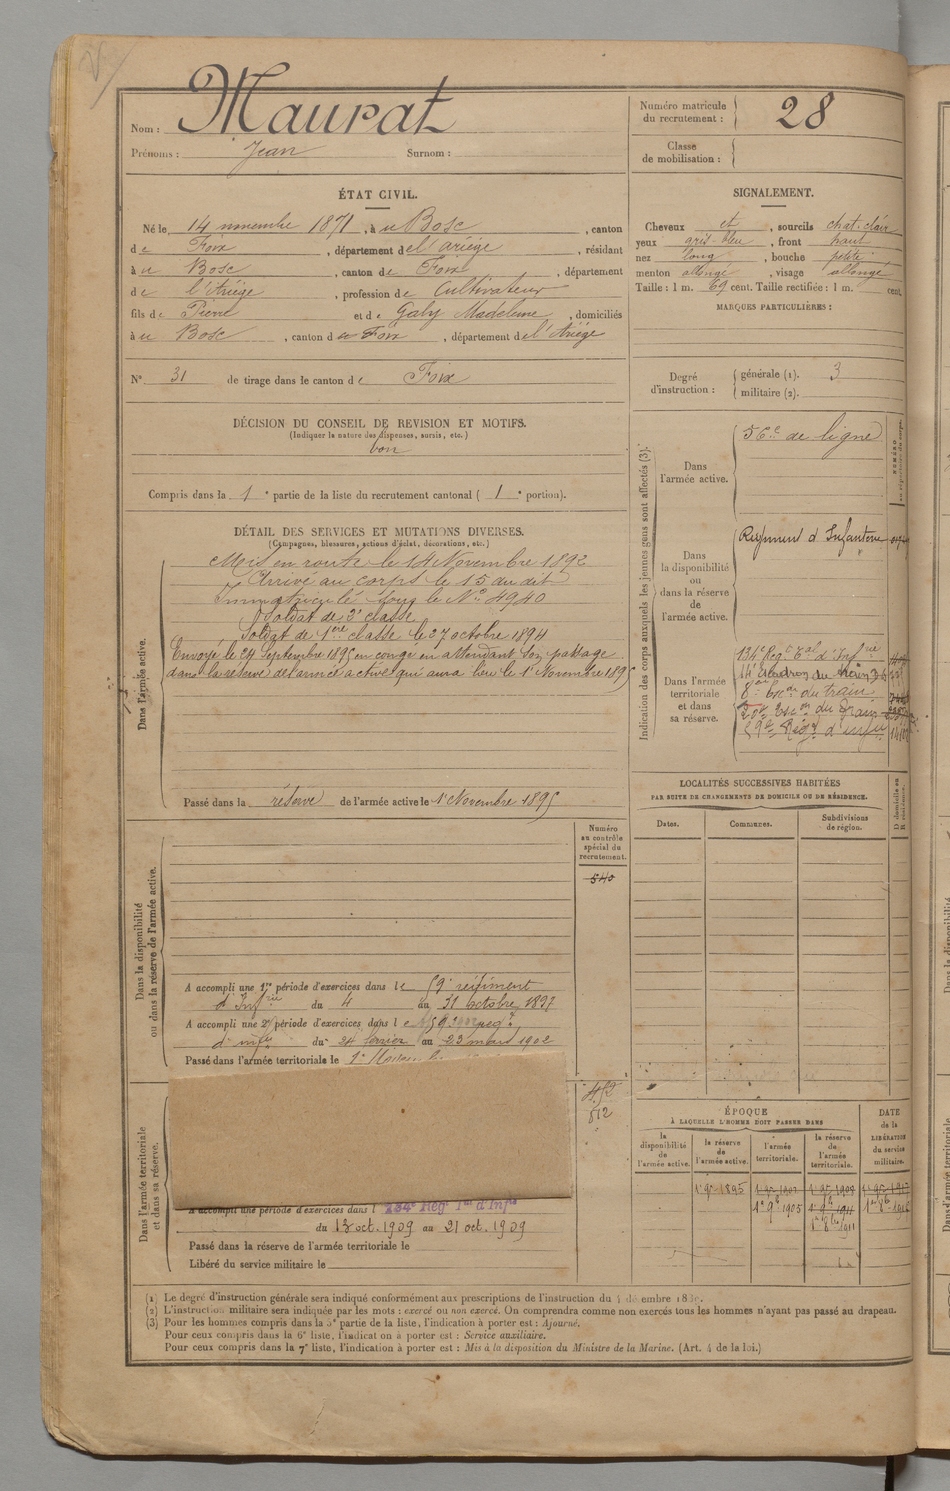 Nom : Maurat
Prénoms : Jean Surnom :
Numéro matricule du recrutement : 28
Classe de mobilisation :
ÉTAT CIVIL.
Né le 14 novembre 1871, à u Bosc, canton
de Foix, département de l'ariège, résidant
à u Bosc, canton de Foix, département
de l'Ariège, profession de Cultivateur
fils de Pierre et de Galy Madeleine, domiciliés
à u Bosc, canton d e Foix, département de l'Ariège
N° 31 de tirage dans le canton de Foix
DÉCISION DU CONSEIL DE REVISION ET MOTIFS.
(Indiquer la nature des dispenses, sursis, etc.)
bon
Compris dans la 1e partie de la liste du recrutement cantonal ( 1e portion).
SIGNALEMENT.
Cheveux et, sourcils chat. clair
yeux gris-bleu, front haut
nez long, bouche petite
menton allongé, visage allongé
Taille : 1 m. 69 cent. Taille rectifiée : 1 m. cent.
MARQUES PARTICULIÈRES :
Degré d'instruction : générale (1). 3
militaire (2).
DÉTAIL DES SERVICES ET MUTATIONS DIVERSES.
(Campagnes, blessures, actions d'éclat, décorations, etc.)
Dans l'armée active.
Mis en route le 14 Novembre 1892
Arrivé au corps le 15 du dit
Immatriculé sous le N° 4940
Soldat de 2e classe
Soldat de 1ère classe le 27 octobre 1894
Envoyé le 24 Septembre 1895 en congé en attendant son passage
dans la réserve de l'armée active qui aura lieu le 1er Novembre 1895
Passé dans la réserve de l'armée active le 1er Novembre 1895
Indication des corps auxquels les jeunes gens sont affectés (3).
Dans l'armée active.
56e de ligne
Dans la disponibilité ou dans la réserve de l'armée active.
Régiment d'Infanterie
Dans l'armée territoriale et dans sa réserve.
134e Reg.t t.al d'Inf.rie
8e Esc.on du train
59e Rég.t d'inf.ie
LOCALITÉS SUCCESSIVES HABITÉES
PAR SUITE DE CHANGEMENTS DE DOMICILE OU DE RÉSIDENCE.
Dates. Communes. Subdivisions de région.
Dans la disponibilité
ou dans la réserve de l'armée active.
Numéro au contrôle spécial du recrutement.
540
A accompli une 1re période d'exercices dans le 59e régiment
d'Inf.rie du 4 au 31 octobre 1897
A accompli une 2e période d'exercices dans le 59e reg.t
d'inf.ie du 24 février au 23 mars 1902
Passé dans l'armée territoriale le 1er
Dans l'armée territoriale
et dans sa réserve.
452
512
A accompli une période d'exercices dans l 134e Rég. T.al d'Inf.ie
du 13 oct. 1909 au 21 oct. 1909
Passé dans la réserve de l'armée territoriale le
Libéré du service militaire le
ÉPOQUE
À LAQUELLE L'HOMME DOIT PASSER DANS
la disponibilité de l'armée active.
la réserve de l'armée active.
l'armée territoriale.
la réserve de l'armée territoriale.
DATE de la LIBÉRATION du service militaire.
(1) Le degré d'instruction générale sera indiqué conformément aux prescriptions de l'instruction du
(2) L'instruction militaire sera indiquée par les mots : exercé ou non exercé. On comprendra comme non exercés tous les hommes n'ayant pas passé au drapeau.
(3) Pour les hommes compris dans la 5e partie de la liste, l'indication à porter est : Ajourné.
Pour ceux compris dans la 6e liste, l'indication à porter est : Service auxiliaire.
Pour ceux compris dans la 7e liste, l'indication à porter est : Mis à la disposition du Ministre de la Marine. (Art. 4 de la loi.)